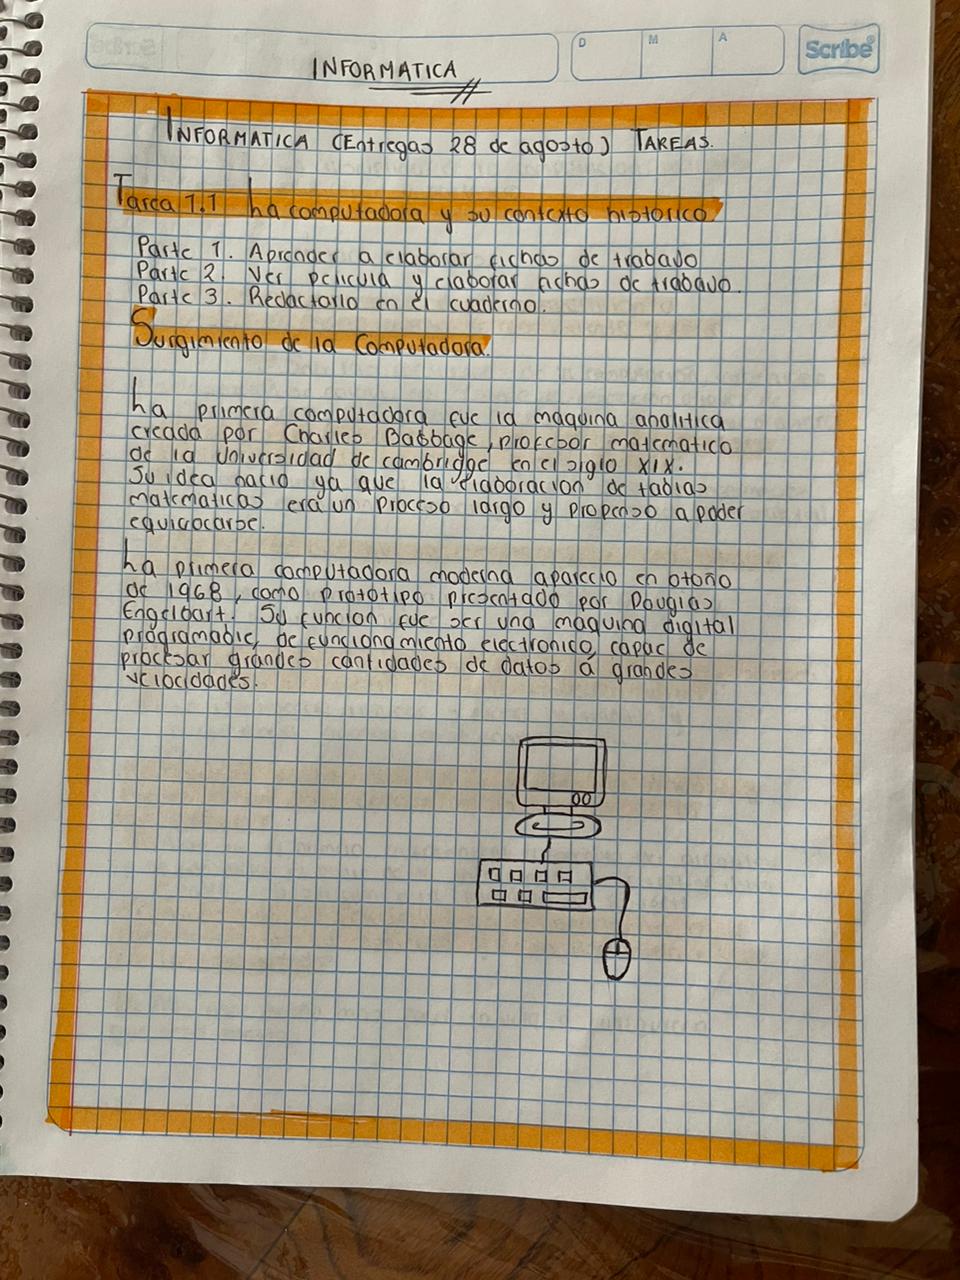 INFORMATICA
D M A
Scribe
INFORMATICA (Entregas 28 de agosto) TAREAS.
Tarea 1.1 La computadora y su contexto historico
Parte 1. Aprender a elaborar fichas de trabajo
Parte 2. Ver pelicula y elaborar fichas de trabajo.
Parte 3. Redactarlo en el cuaderno.
Surgimiento de la Computadora.
La primera computadora fue la maquina analitica
creada por Charles Babbage, profesor matematico
de la Universidad de cambridge en el siglo XIX.
Su idea nacio ya que la elaboracion de tablas
matematicas era un proceso largo y propenso a poder
equivocarse.
La primera computadora moderna aparecio en otoño
de 1968, como prototipo presentado por Douglas
Engelbart. Su funcion fue ser una maquina digital
programable, de funcionamiento electronico, capac de
procesar grandes cantidades de datos a grandes
velocidades.